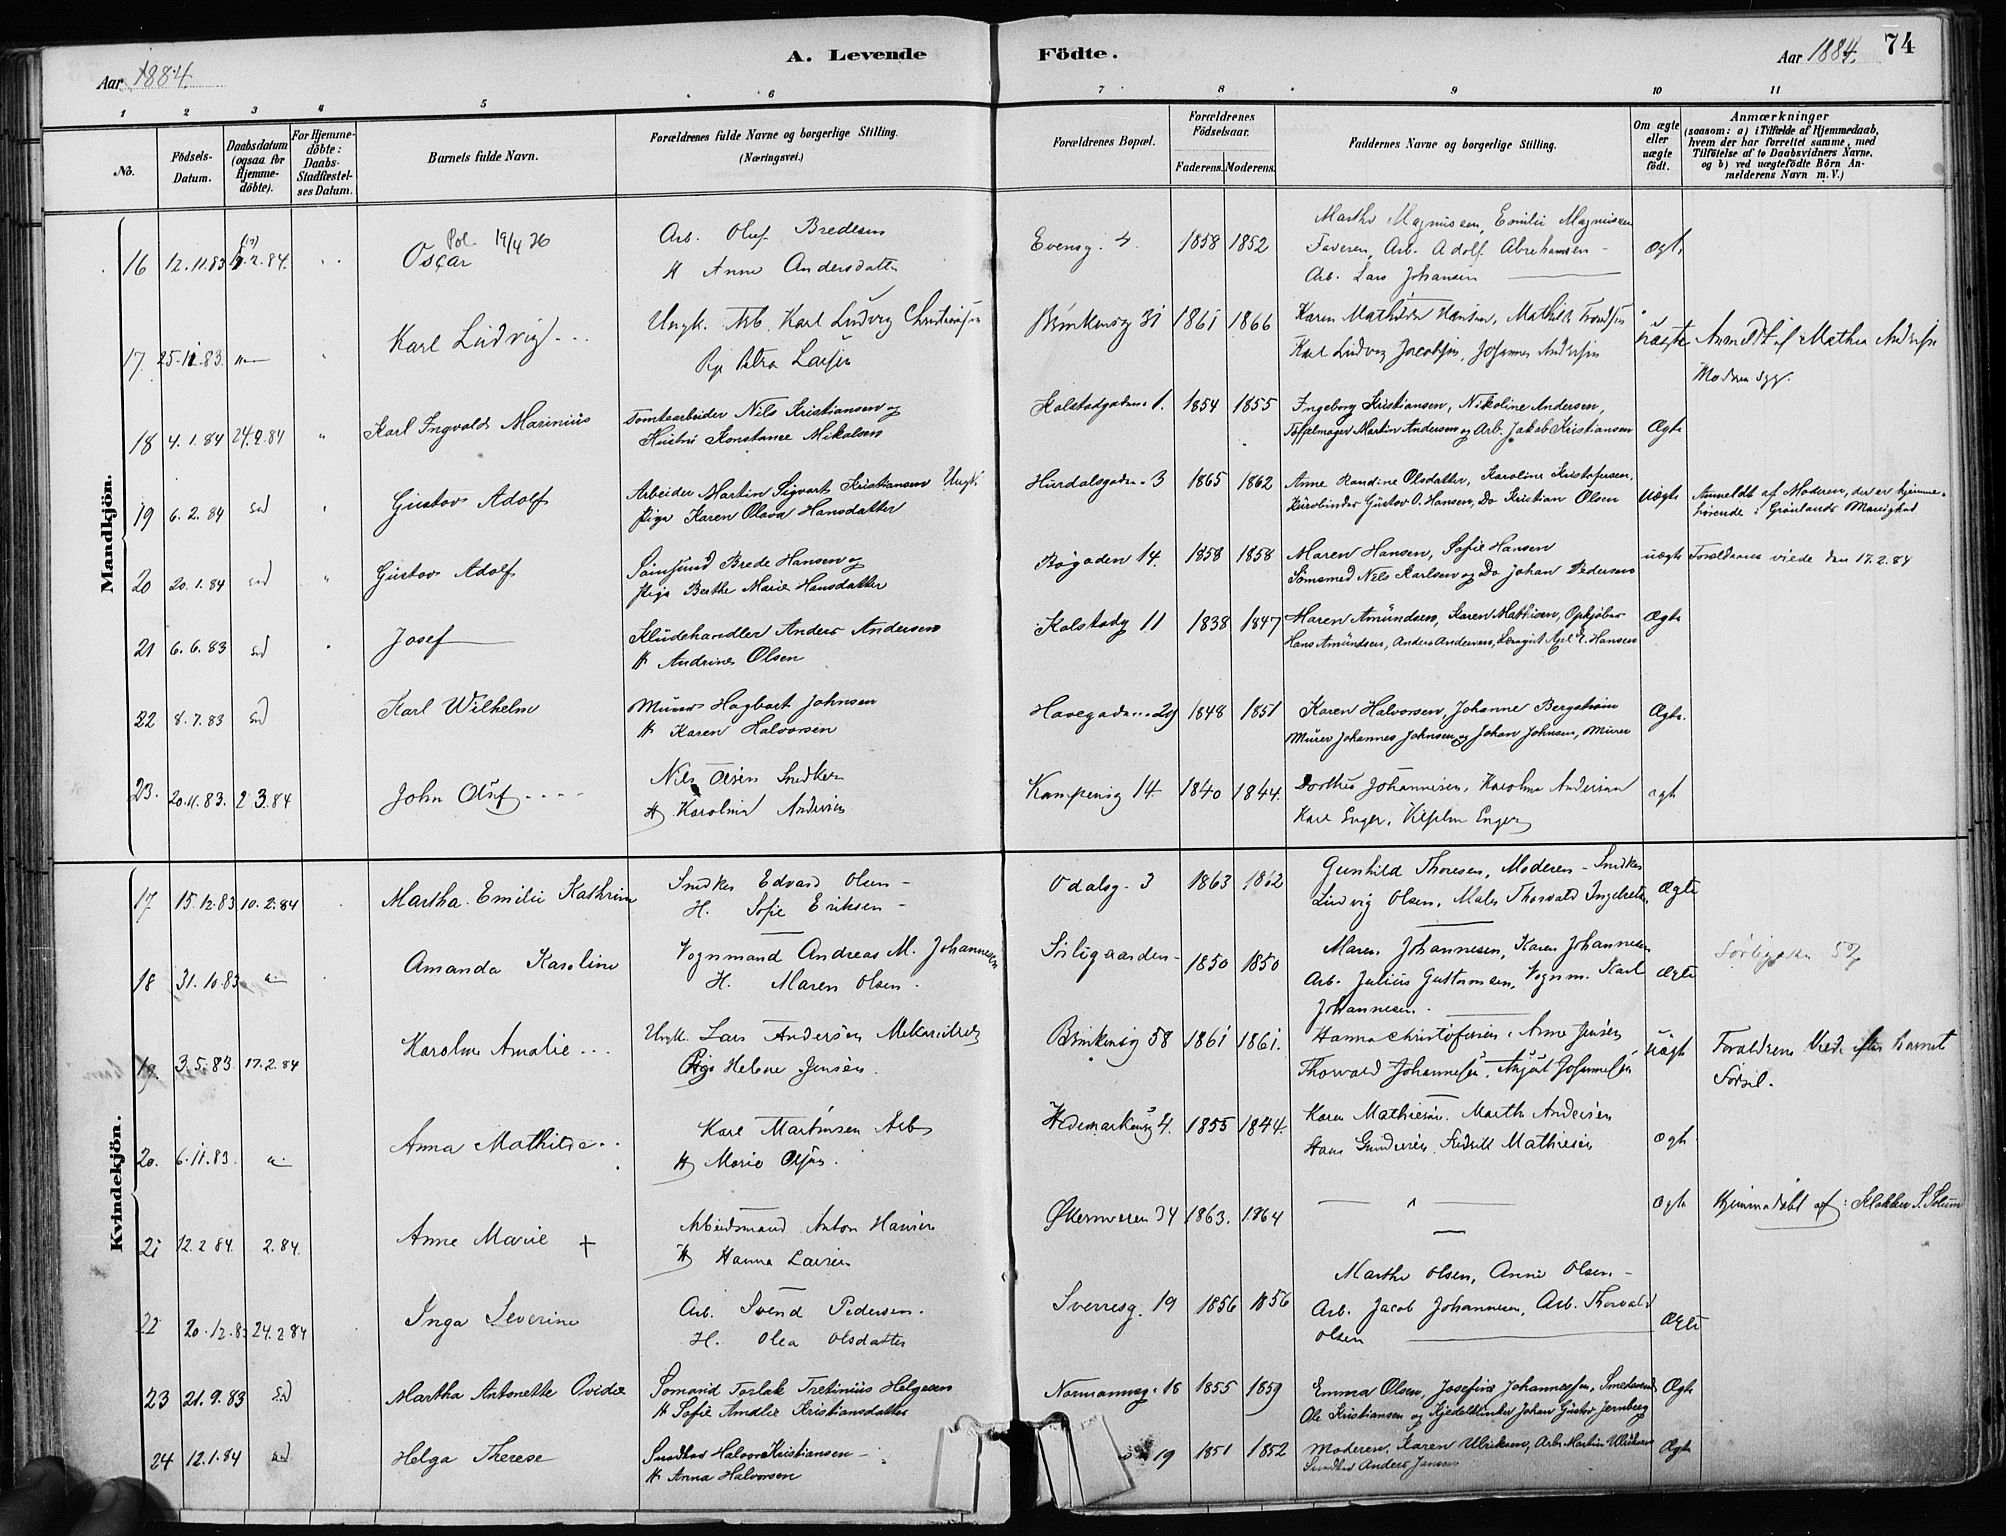 Aar 1884.
A. Levende Födte.
Aar 1884. 74
1 2 3 4 5 6 7 8 9 10 11
No.
Födsels-Datum.
Daabsdatum (ogsaa for Hjemme-döbte).
For Hjemme-döbte: Daabs-Stadfæstel-ses Datum.
Barnets fulde Navn.
Forældrenes fulde Navne og borgerlige Stilling. (Næringsvei.)
Forældrenes Bopæl.
Forældrenes Födselsaar.
Faderens. Moderens.
Faddernes Navne og borgerlige Stilling.
Om ægte eller uægte födt.
Anmærkninger (saasom: a) i Tilfælde af Hjemmedaab, hvem der har forrettet samme, med Tilföielse af to Daabsvidners Navne, og b) ved uægtefödte Börn An-melderens Navn m. V.)
Mandkjön.
Pol. 19/4 26
16 12.11.83 2.84. Oscar
Arb. Oluf Bredesen
H Anne Andersdatter
Evensg. 4. 1858 1852
Marthe Magnussen, Emilie Magnussen
Faderen, Arb. Adolf Abrahamsen -
Arb. Lars Johansen
ægte
17. 25.11.83. Karl Ludvig
Ungk. Arb. Karl Ludvig Christensen
Pige Petra Larsen
Brinkensg 31 1861 1866
Karen Mathilde Hansen, Mathilde
Karl Ludvig Jacobsen, Johannes Andersen
uægte
Anmeldt af Mathea Andersen
18 4.1.84 24.2.84 " Karl Ingvald Marinius
Tomtearbeider Nils Kristiansen og
Hustru Konstance Mikalsen
Kolstadgaden 1. 1854 1855
Ingeborg Kristiansen, Nikoline Andersen,
Töffelmager Martin Andersen og Arb. Jakob Kristiansen
Ægte
19 6.2.84 sad " Gustav Adolf
Arbeider Martin Sigvart Kristiansen Ungk.
Pige Karen Olava Hansdatter
Hurdalsgaden 3 1865 1862
Anne Randine Olsdatter, Karoline Kristofersen,
Kurvbinder Gustav O. Hansen, Do Kristian Olsen
Uægte
Anmeldt af Moderen, der er hjemme-
hörende i Grönlands Menighed
20 20.1.84 sad " Gustav Adolf
Brede Hansen og
Pige Berthe Marie Hansdatter
Bögaden 14. 1858 1858
Maren Hansen, Sofie Hansen
Nils Karlsen og Do Johan Pedersen
uægte Forældrene viede den 17.2.84
21 6.6.83 sad Josef
Kludehandler Anders Andersen
H Andrine Olsen
Kolstadg 11 1838 1847
Maren Amundsen, Karen Mathisen, Opkjöber
Hans Amundsen, Anders Andersen, Axel E. Hansen
Ægte
22 8.7.83 sad Karl Wilhelm
Murer Hagbart Johnsen
H Karen Halvorsen
Havegaden 29 1848 1851
Karen Halvorsen, Johanne Bergström
Murer Johannes Johnsen og Johan Johnsen, Murer
Ægte.
23. 20.11.83. 2.3.84 John Oluf
Nils Olsen Snedker
H Karoline Andersen
Kampensg 14 1840 1844.
Dorthea Johannesen, Karoline Andersen
Karl Enger, Enger
ægte
Kvindekjön.
17 15.12.83 10.2.84 Martha Emilie Kathrine
Snedker Edvard Olsen -
H. Sofie Eriksen -
Odalsg. 3 1863 1862
Gunhild Thoresen, Moderen - Snedker
Ludvig Olsen, Maler Thorvald
Ægte
18 31.10.83 Amanda Karoline
Vognmand Andreas M. Johannesen
H. Maren Olsen.
1850 1850
Maren Johannesen, Karen Johannesen
Arb. Julius Guttormsen, Vognm. Karl
Johannesen.
Ægte
19 3.5.83. 17.2.84 Karoline Amalie
Ungk. Lars Andersen
Pige Helene Jensen.
Brinkensg 58 1861 1861.
Hanna Christofersen, Anne Jensen
Thorvald Johannesen, August Johannesen
uægte
Forældrene Viede efter barnet
Födsel.
20. 6.11.83. Anna Mathilde
Karl Martinsen Arb
H Marie Olsen.
Hedemarkensg 4. 1855 1844.
Karen Mathiesen. Marthe Andersen
Hans Gundersen, Fredrik Mathiesen
ægte
21 12.2.84. 2.84. Anne Marie +
Arbeidsmand Anton Hansen
H Hanna Larsen
Økernveien 34 1863. 1864
Ægte Hjemmedöbt af: Klokker S. Solum
22 20.12.83 24.2.84 Inga Severine
Arb. Svend Pedersen.
H. Olea Olsdatter
Sverresg. 19 1856 1856
Marthe Olsen, Anne Olsen -
Arb. Jacob Johannesen, Arb. Thorvald
Olsen
Ægte
23 21.9.83 sad Martha Antonette Ovidie
Somand Torlak Tretinius Helgesen
H Sofie Amalie Kristiansdatter
Normannsg. 18 1855 1859
Emma Olsen, Josefine Johannessen, Smedsvend
Ole Kristiansen og Kjedelklinker Johan Gustav Jernberg
Ægte
24 12.1.84 sad Helga Therese
Snedker Halvor Kristiansen -
H Anna Halvorsen
19 1851 1852
Moderen, Karen Ulriksen, Arb. Martin Ulriksen
Snedker Anders Jansen
Ægte